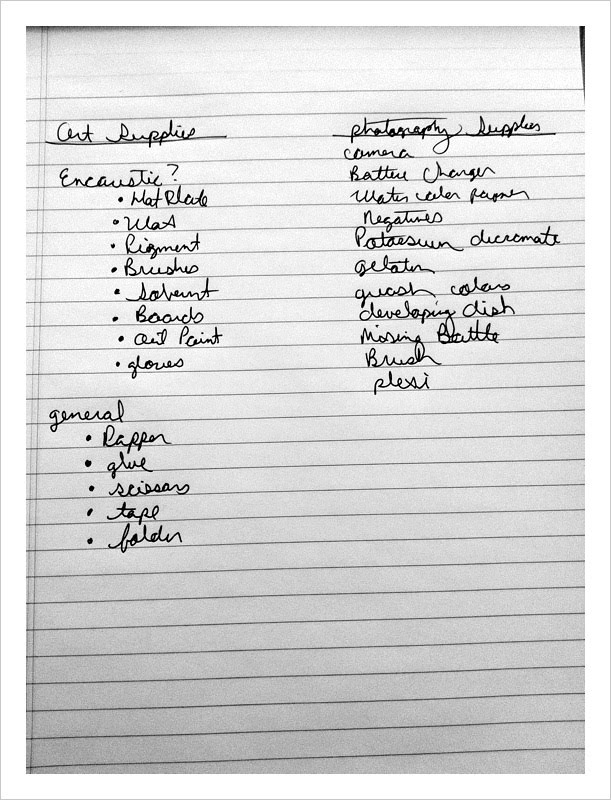 Art Supplies
Encaustic?
• Hot Plate
• Wax
• Pigment
• Brushes
• Solvent
• Boards
• Oil Paint
• gloves
general
• Papper
• glue
• scissors
• tape
• folder
photography Supplies
camera
Battere Charger
Water color papper
Negatives
Potassium dicromate
gelatin
guash colors
developing dish
Mixing Bottle
Brush
plexi